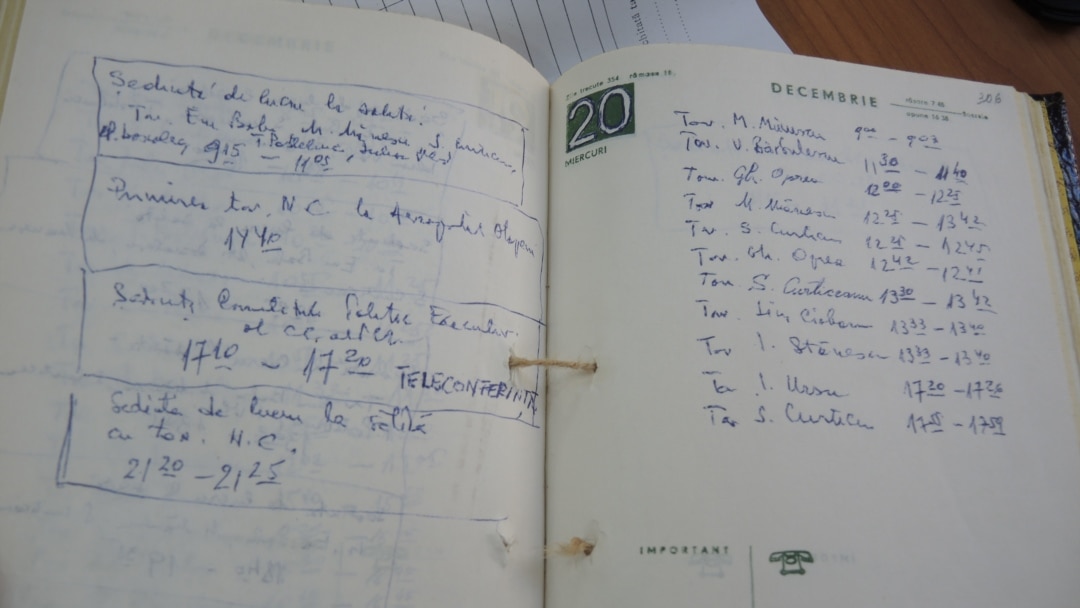 Ședință de lucru la
Tov. Em. Bobu, M. Mănescu, S. Curticeanu,
T. Postelnicu,
9 15 – 11 05
Primirea tov. N.C. la Aeroportul Otopeni
14 40
Ședința Comitetului Politic Executiv
al CC al PCR
17 10 – 17 20 TELECONFERINȚĂ
Ședință de lucru la
cu tov. N.C.
21 20 – 21 25
Zile trecute 354 rămase 11
20
MIERCURI
DECEMBRIE
306
Tov. M. Mănescu 9 00 – 9 03
Tov. V. Bărbulescu 11 30 – 11 40
Tov. Gh. Oprea 12 00 – 12 25
Tov. M. Mănescu 12 25 – 13 42
Tov. S. Curticeanu 12 25 – 12 45
Tov. Gh. Oprea 12 42 –
Tov. S. Curticeanu 13 30 – 13 42
Tov. Lina Ciobanu 13 33 – 13 40
Tov. I. Stănescu 13 33 – 13 40
Tov. I. Ursu 17 20 –
Tov. S. Curticeanu – 17 59
IMPORTANT